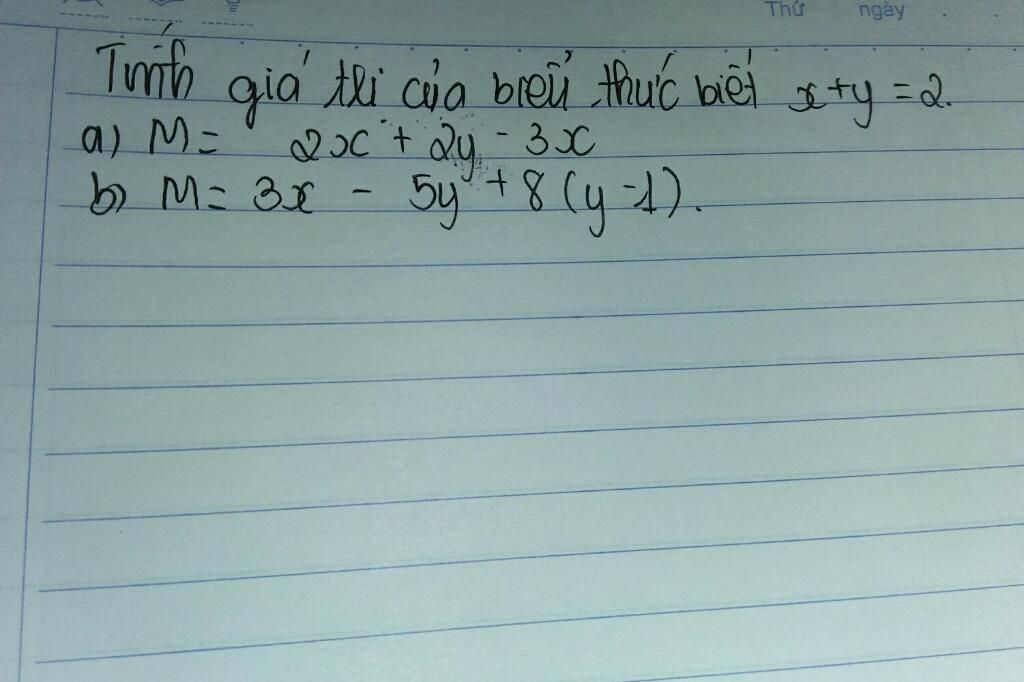 Thứ ngày
Tính giá trị của biểu thức biết x+y=2.
a) M= 2x + 2y - 3x
b) M= 3x - 5y + 8(y-1).